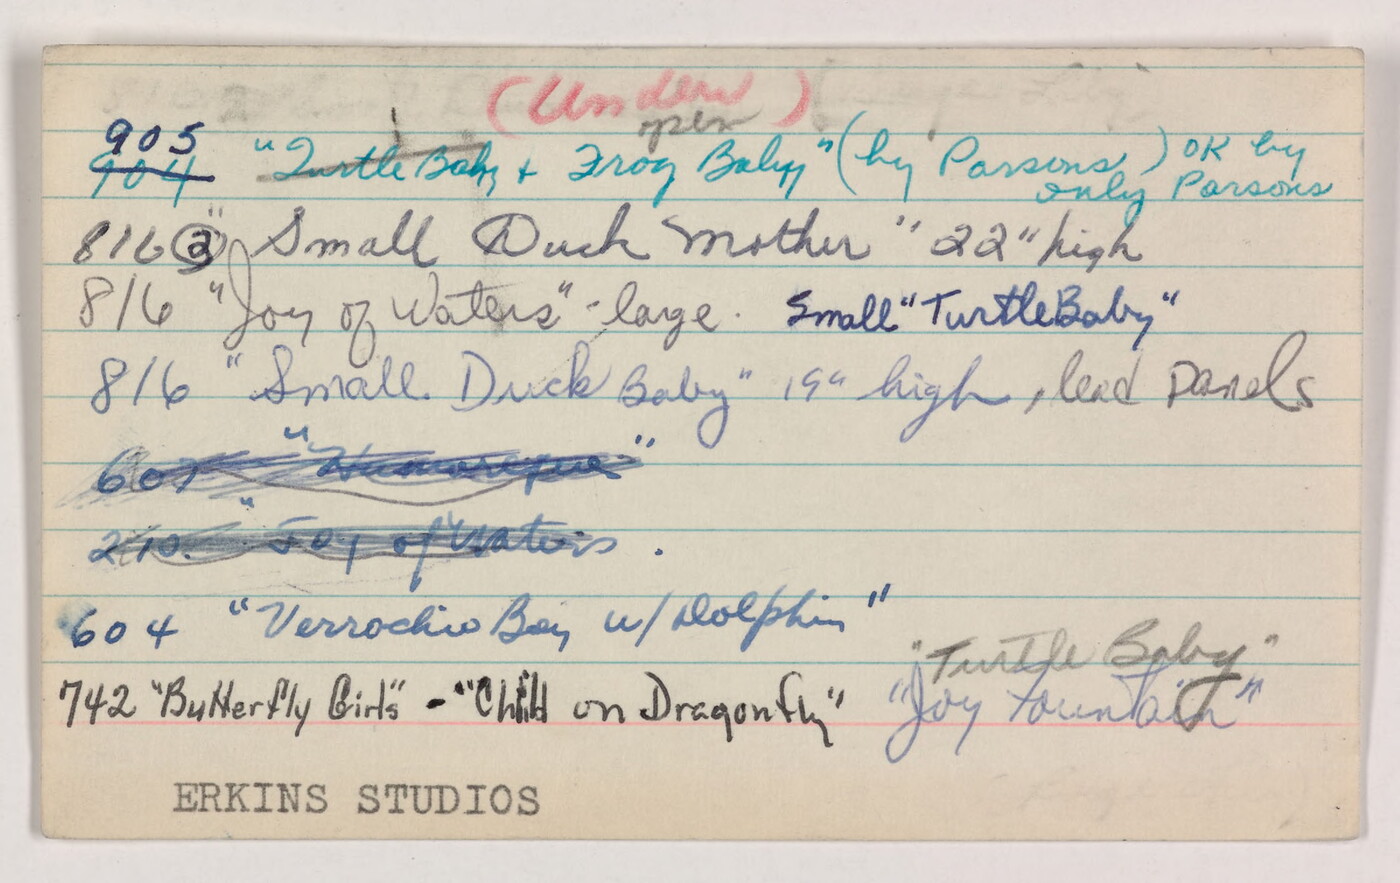 (Under)
open
905
904 "Turtle Baby + Frog Baby" (by Parsons) OK by
only Parsons
816 2 "Small Duck Mother" 22" high
816 "Joy of Waters" - large. Small "TurtleBaby"
816 "Small Duck Baby" 19" high, lead panels
607 "Humoresque"
210. "Joy of Waters .
604 "Verrochio Boy w/Dolphin"
"Turtle Baby"
742 "Butterfly Girls" - "Child on Dragonfly" "Joy Fountain"
ERKINS STUDIOS